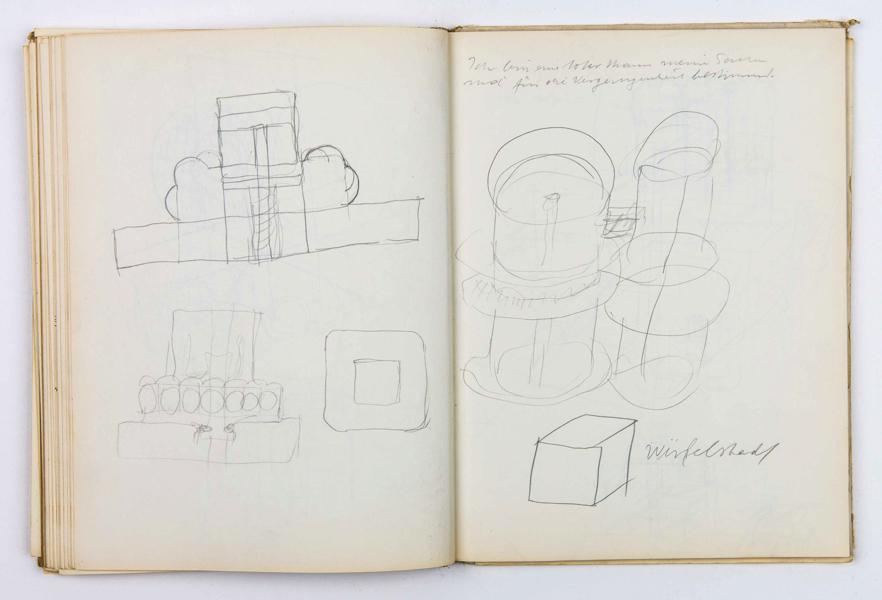 Ich bin ein toter Mann meine Sachen
sind für die Vergangenheit bestimmt.
Würfelstadt